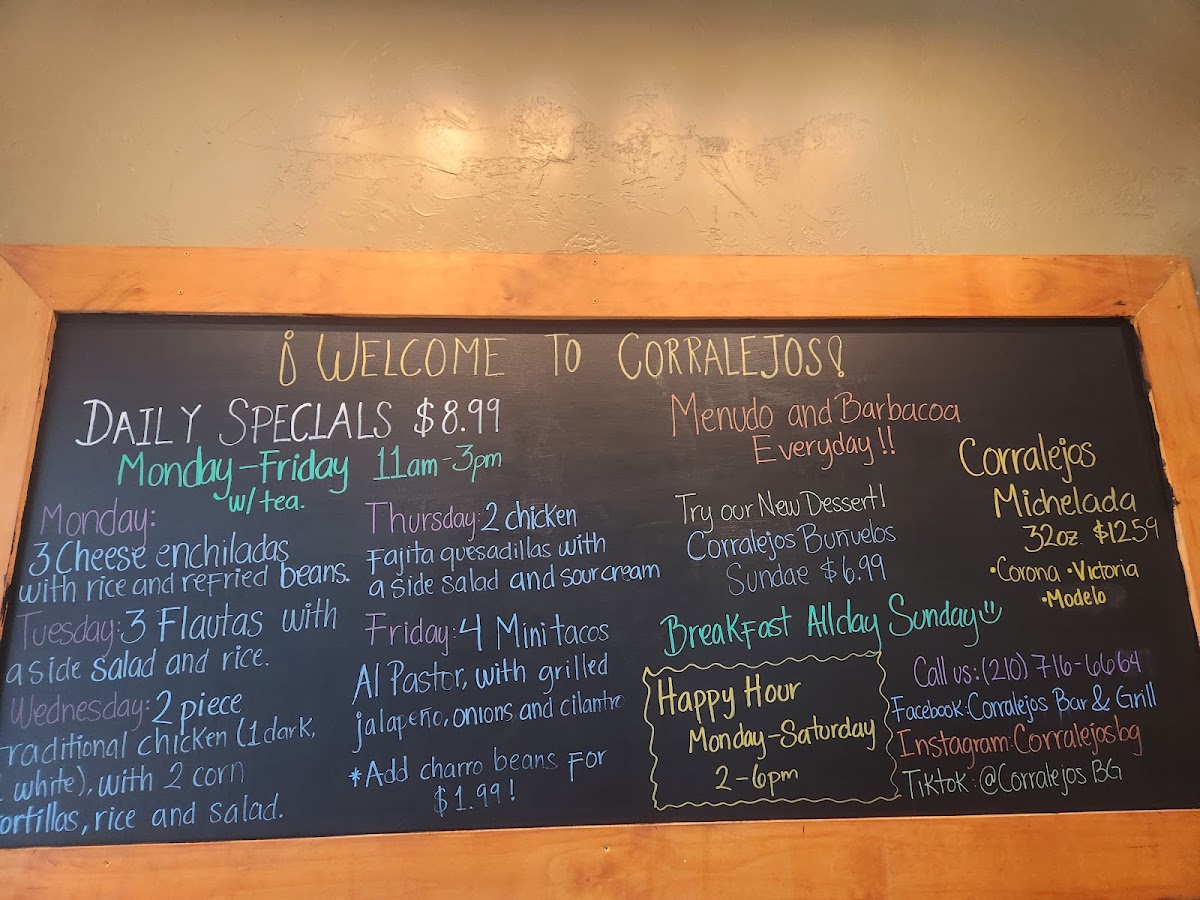 ¡WELCOME TO CORRALEJOS!
DAILY SPECIALS $8.99
Monday-Friday 11am-3pm
w/tea.
Monday:
3 Cheese enchiladas
with rice and refried beans.
Tuesday: 3 Flautas with
a side salad and rice.
Wednesday: 2 piece
traditional chicken (1 dark,
1 white), with 2 corn
tortillas, rice and salad.
Thursday: 2 chicken
Fajita quesadillas with
a side salad and sour cream
Friday: 4 Mini tacos
Al Pastor, with grilled
jalapeño, onions and cilantro
*Add charro beans For
$1.99!
Menudo and Barbacoa
Everyday!!
Try our New Dessert!
Corralejos Buñuelos
Sundae $6.99
Corralejos
Michelada
32oz. $12.59
•Corona •Victoria
•Modelo
Breakfast All day Sunday
Happy Hour
Monday-Saturday
2-6pm
Call us: (210) 716-6664
Facebook: Corralejos Bar & Grill
Instagram: Corralejosbg
Tiktok: @Corralejos BG